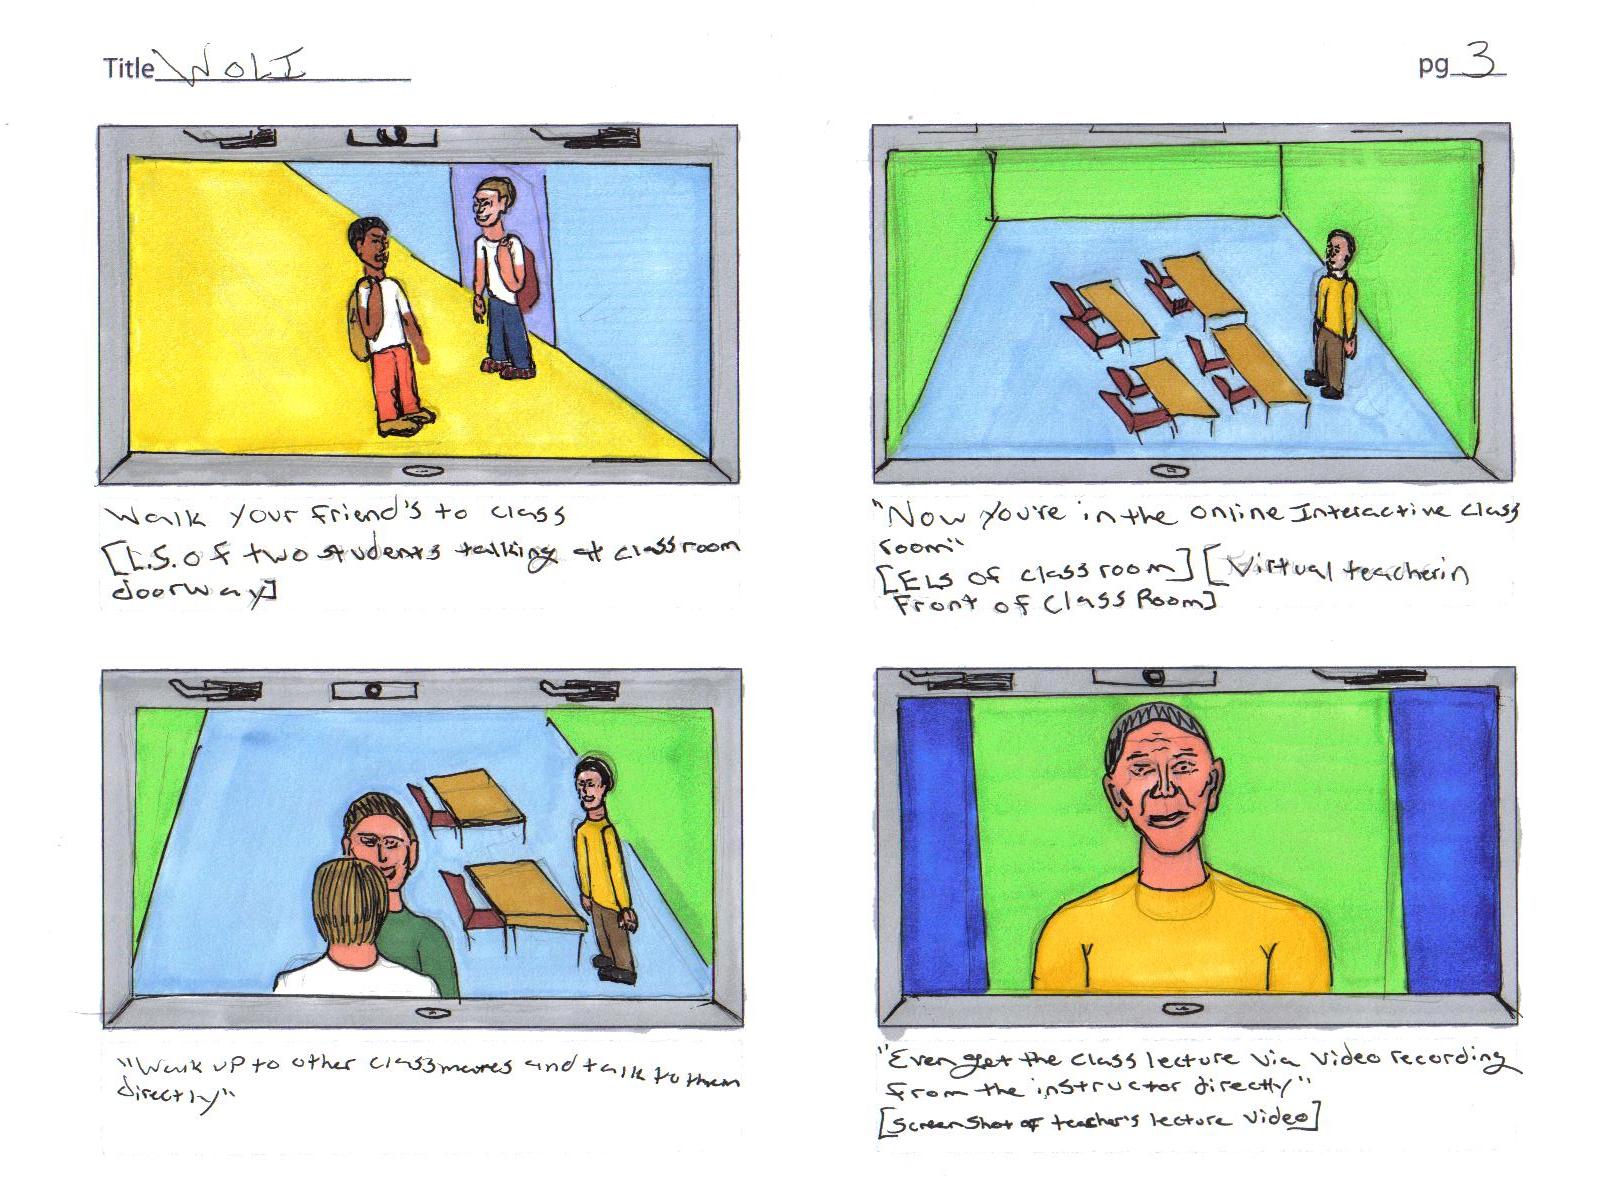 Title WOLI
pg 3
Walk your friend's to class
[L.S. of two students talking at classroom
doorway]
"Now you're in the online Interactive class
room"
[ELS of classroom] [Virtual teacher in
Front of Class Room]
"Walk up to other classmates and talk to them
directly"
"Even get the class lecture via video recording
from the instructor directly"
[Screen Shot of teacher's lecture video]